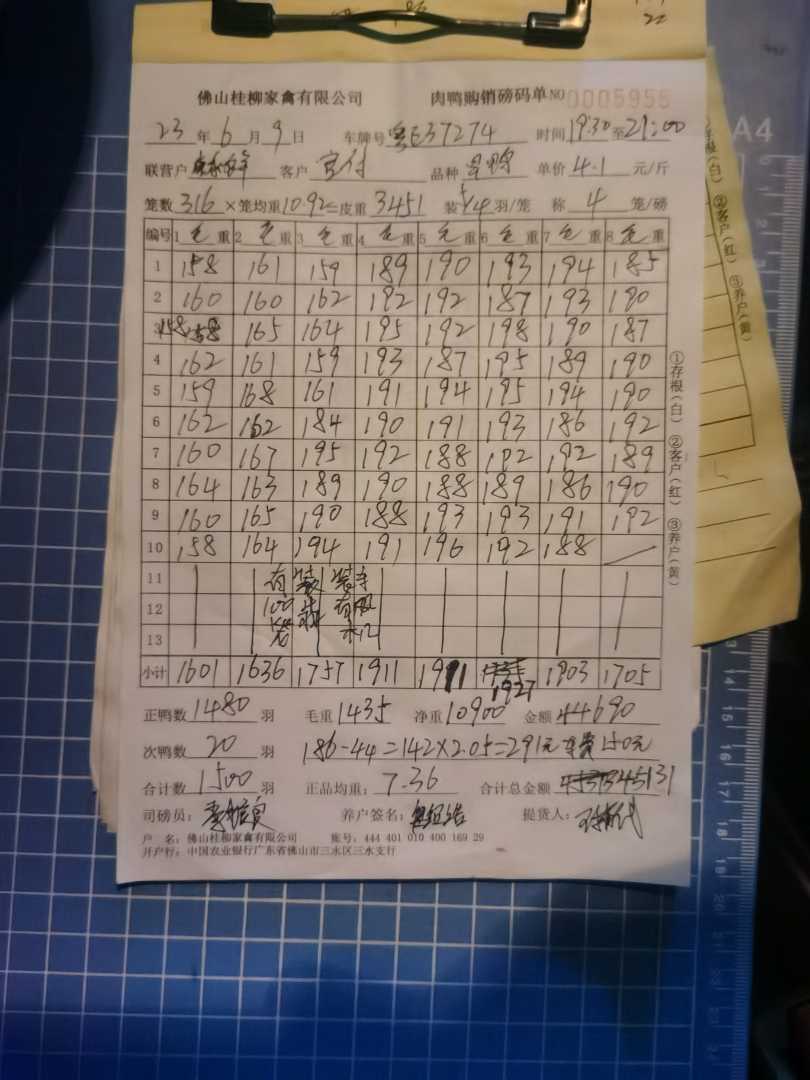 佛山桂柳家禽有限公司 肉鸭购销磅码单 NO 0005956
23年6月9日 车牌号 粤E37274 时间 19:30至21:00
联营户 客户 品种 单价 4.1 元/斤
笼数 316 ×笼均重 10.92=皮重 3451 装 羽/笼 称 4 笼/磅
编号 1 毛重 2 毛重 3 毛重 4 毛重 5 毛重 6 毛重 7 毛重 8 毛重
1 158 161 159 189 190 193 194 185
2 160 160 162 192 192 187 193 190
3 158 165 164 195 192 198 190 187
4 162 161 159 193 187 195 189 190
5 159 168 161 191 194 195 194 190
6 162 162 184 190 191 193 186 192
7 160 167 195 192 188 192 192 189
8 164 163 189 190 188 189 186 190
9 160 165 190 188 193 193 191 192
10 158 164 194 191 196 192 188
11
12
13
小计 1601 1636 1757 1911 1911 1927 1903 1705
正鸭数 1480 羽 毛重 1435 净重 10900 金额 44690
次鸭数 20 羽 186-44=142×2.05=291元 150元
合计数 1500 羽 正品均重: 7.36 合计总金额 45131
司磅员: 养户签名: 提货人:
户 名: 佛山桂柳家禽有限公司 账号: 444 401 010 400 169 29
开户行: 中国农业银行广东省佛山市三水区三水支行
①存根(白) ②客户(红) ③养户(黄)
②客户(红) ③养户(黄)
A4